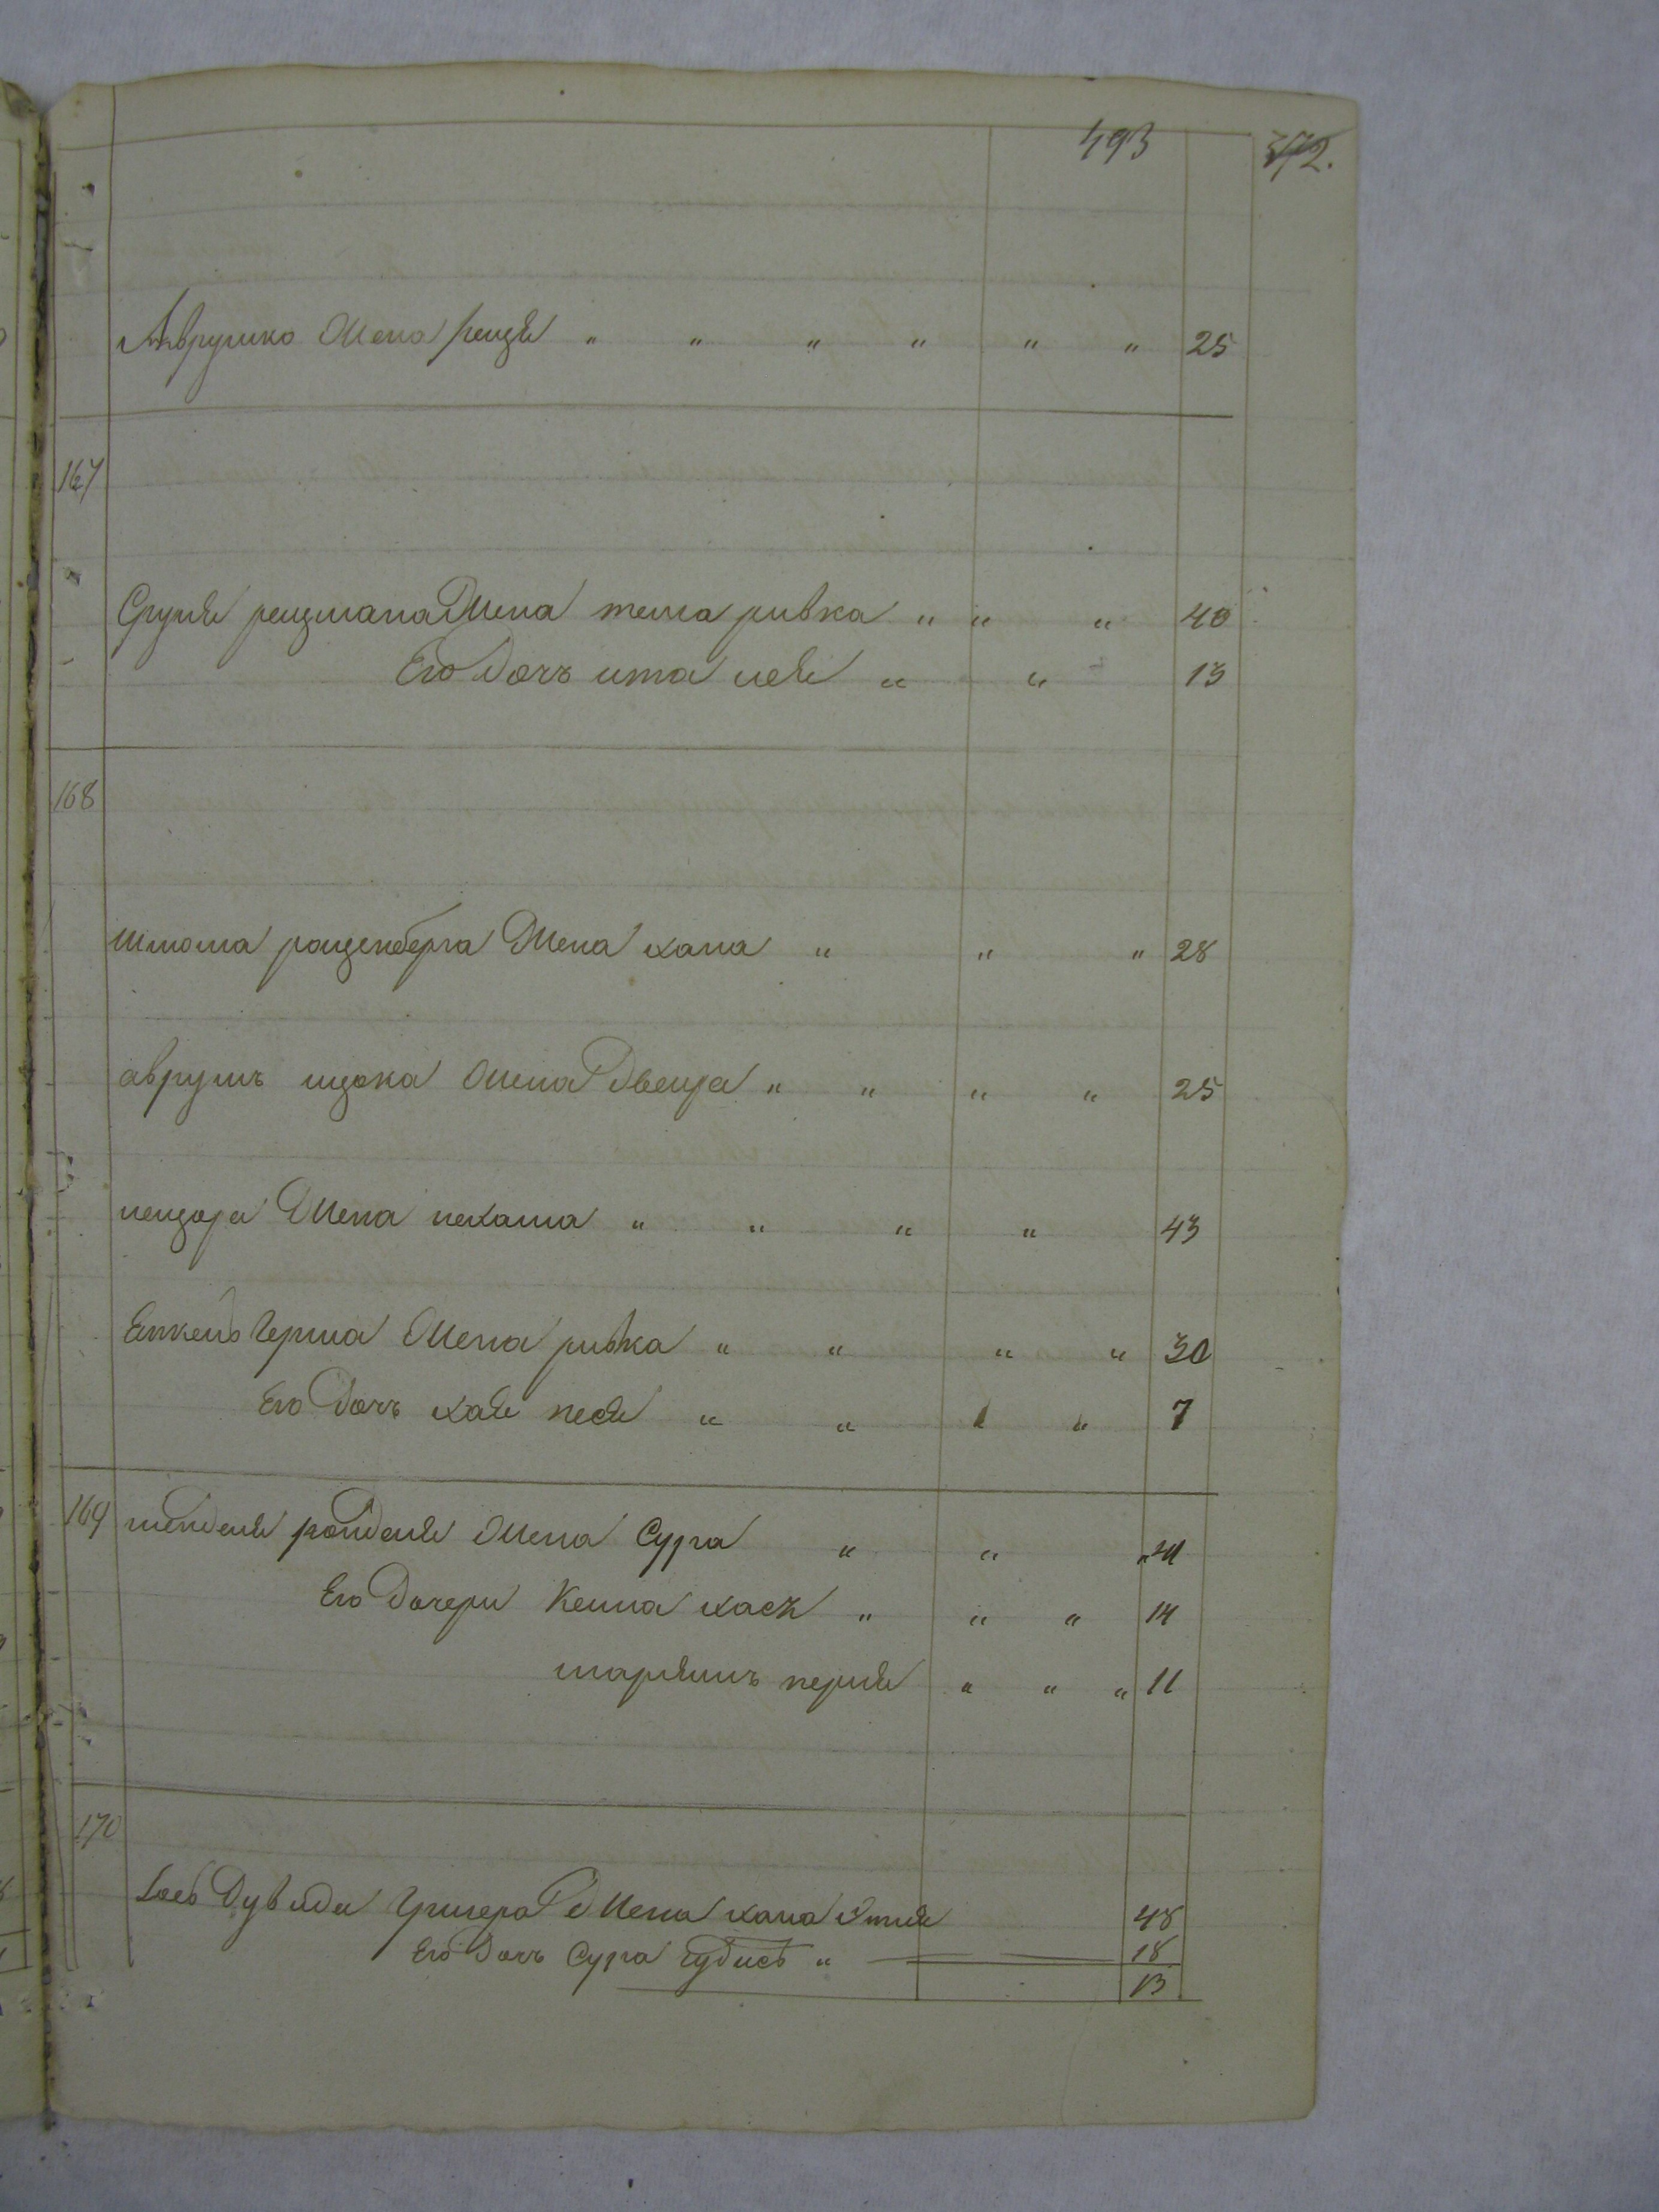 493 372.
Аврумко Жена рейзя " " " " " " 25
167
Срулл рейзмана Жена тема ривка " " " 40
Его Дочь ита лея " " 13
168
Шмома розенберга Жена хана " " " 28
аврумъ ицока Жена Двейра " " " " 25
лейзора Жена нехама " " " " 43
Енкель герша Жена ривка " " " " 30
Его Дочь хая песя " " " " 7
169 менделя Жена Сура " " " 31
Его Дочери Кейла хася " " " 14
марьямъ перля " " " 11
170
Лейб Дувида Жена хана этля 48
Его Дочь Сура гудись " 18
13